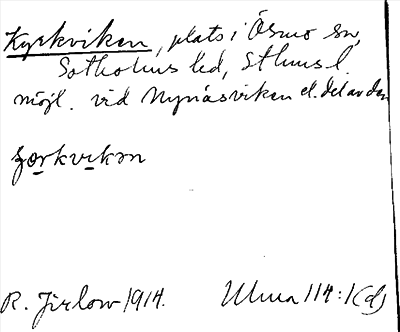 Kyrkviken, plats i Ösmo sn,
Sotholms hd, Sthms l.
möjl. vid Nynäsviken el. del av den
R. Jirlow 1914. Ulma 114:1(d)